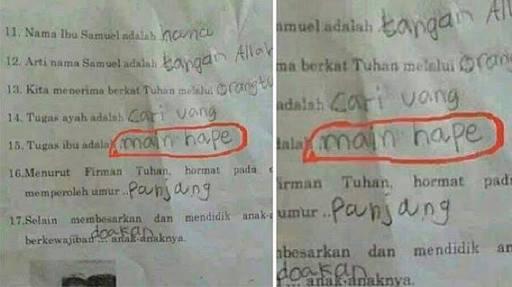 11. Nama Ibu Samuel adalah hana
12. Arti nama Samuel adalah tangan Allah
13. Kita menerima berkat Tuhan melalui Orangtu
14. Tugas ayah adalah Cari uang
15. Tugas ibu adalah main hape
16.Menurut Firman Tuhan, hormat pada
memperoleh umur ..Panjang
17.Selain membesarkan dan mendidik anak-
berkewajiban doakan anak-anaknya.
amuel adalah tangan All
ma berkat Tuhan melalui Oran
adalah Cari uang
alah main hape
irman Tuhan, hormat pad
umur ..Panjang
besarkan dan mendidik an
doakan anak-anaknya.